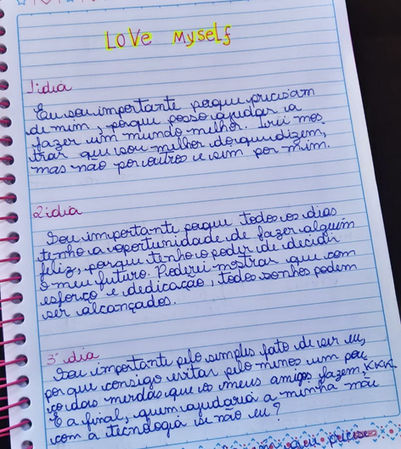 LOVE MYSELF
1 dia
Eu sou importante porque precisam
de mim, porque posso ajudar a
fazer um mundo melhor. Irei mos
trar que sou melhor do que dizem,
mas não por outros e sim por mim.
2 dia
Sou importante porque todos os dias
tenho a oportunidade de fazer alguém
feliz, porque tenho o poder de decidir
o meu futuro. Poderei mostrar que com
esforço e dedicação, todos sonhos podem
ser alcançados.
3° dia
Sou importante pelo simples fato de ser eu,
porque consigo evitar pelo menos um pou
co das merdas que os meus amigos fazem, KKK.
E a final, quem ajudaria a minha mãe
com a tecnologia se não eu?